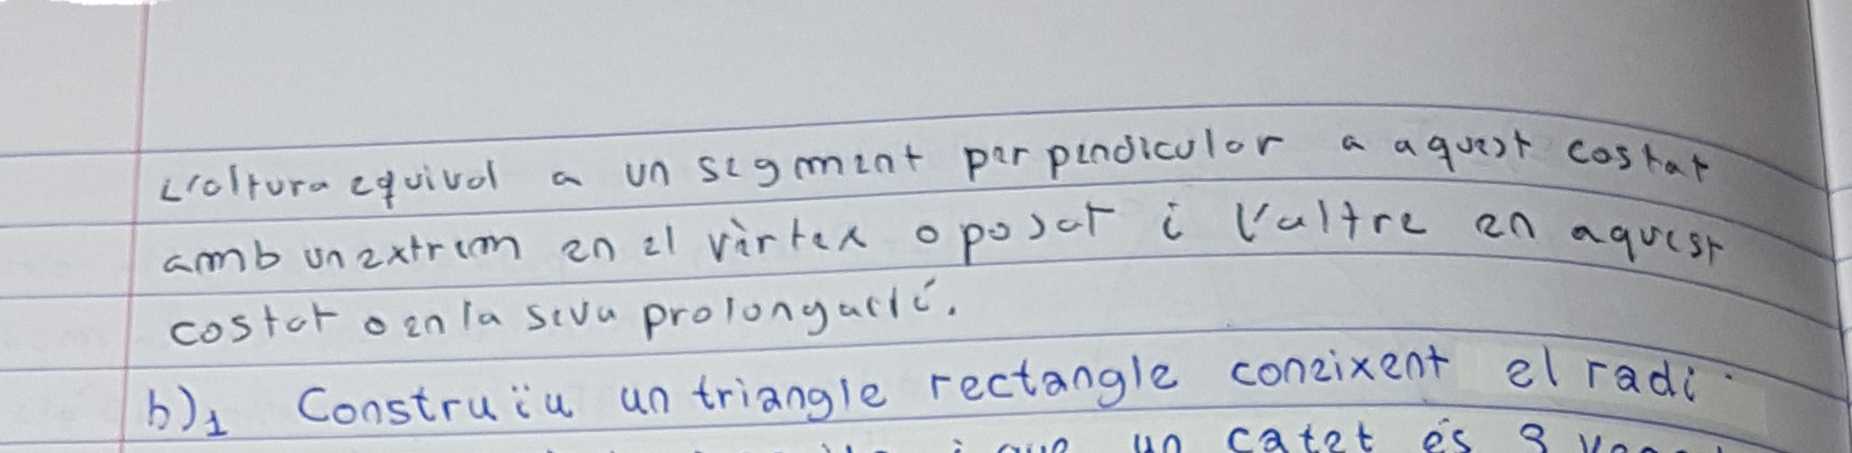 L'altura equival a un segment perpendicular a aquest costat
amb un extrem en el vèrtex oposat i l'altre en aquest
costat o en la seva prolongació.
b)1 Construïu un triangle rectangle coneixent el radi
i que un catet és 3